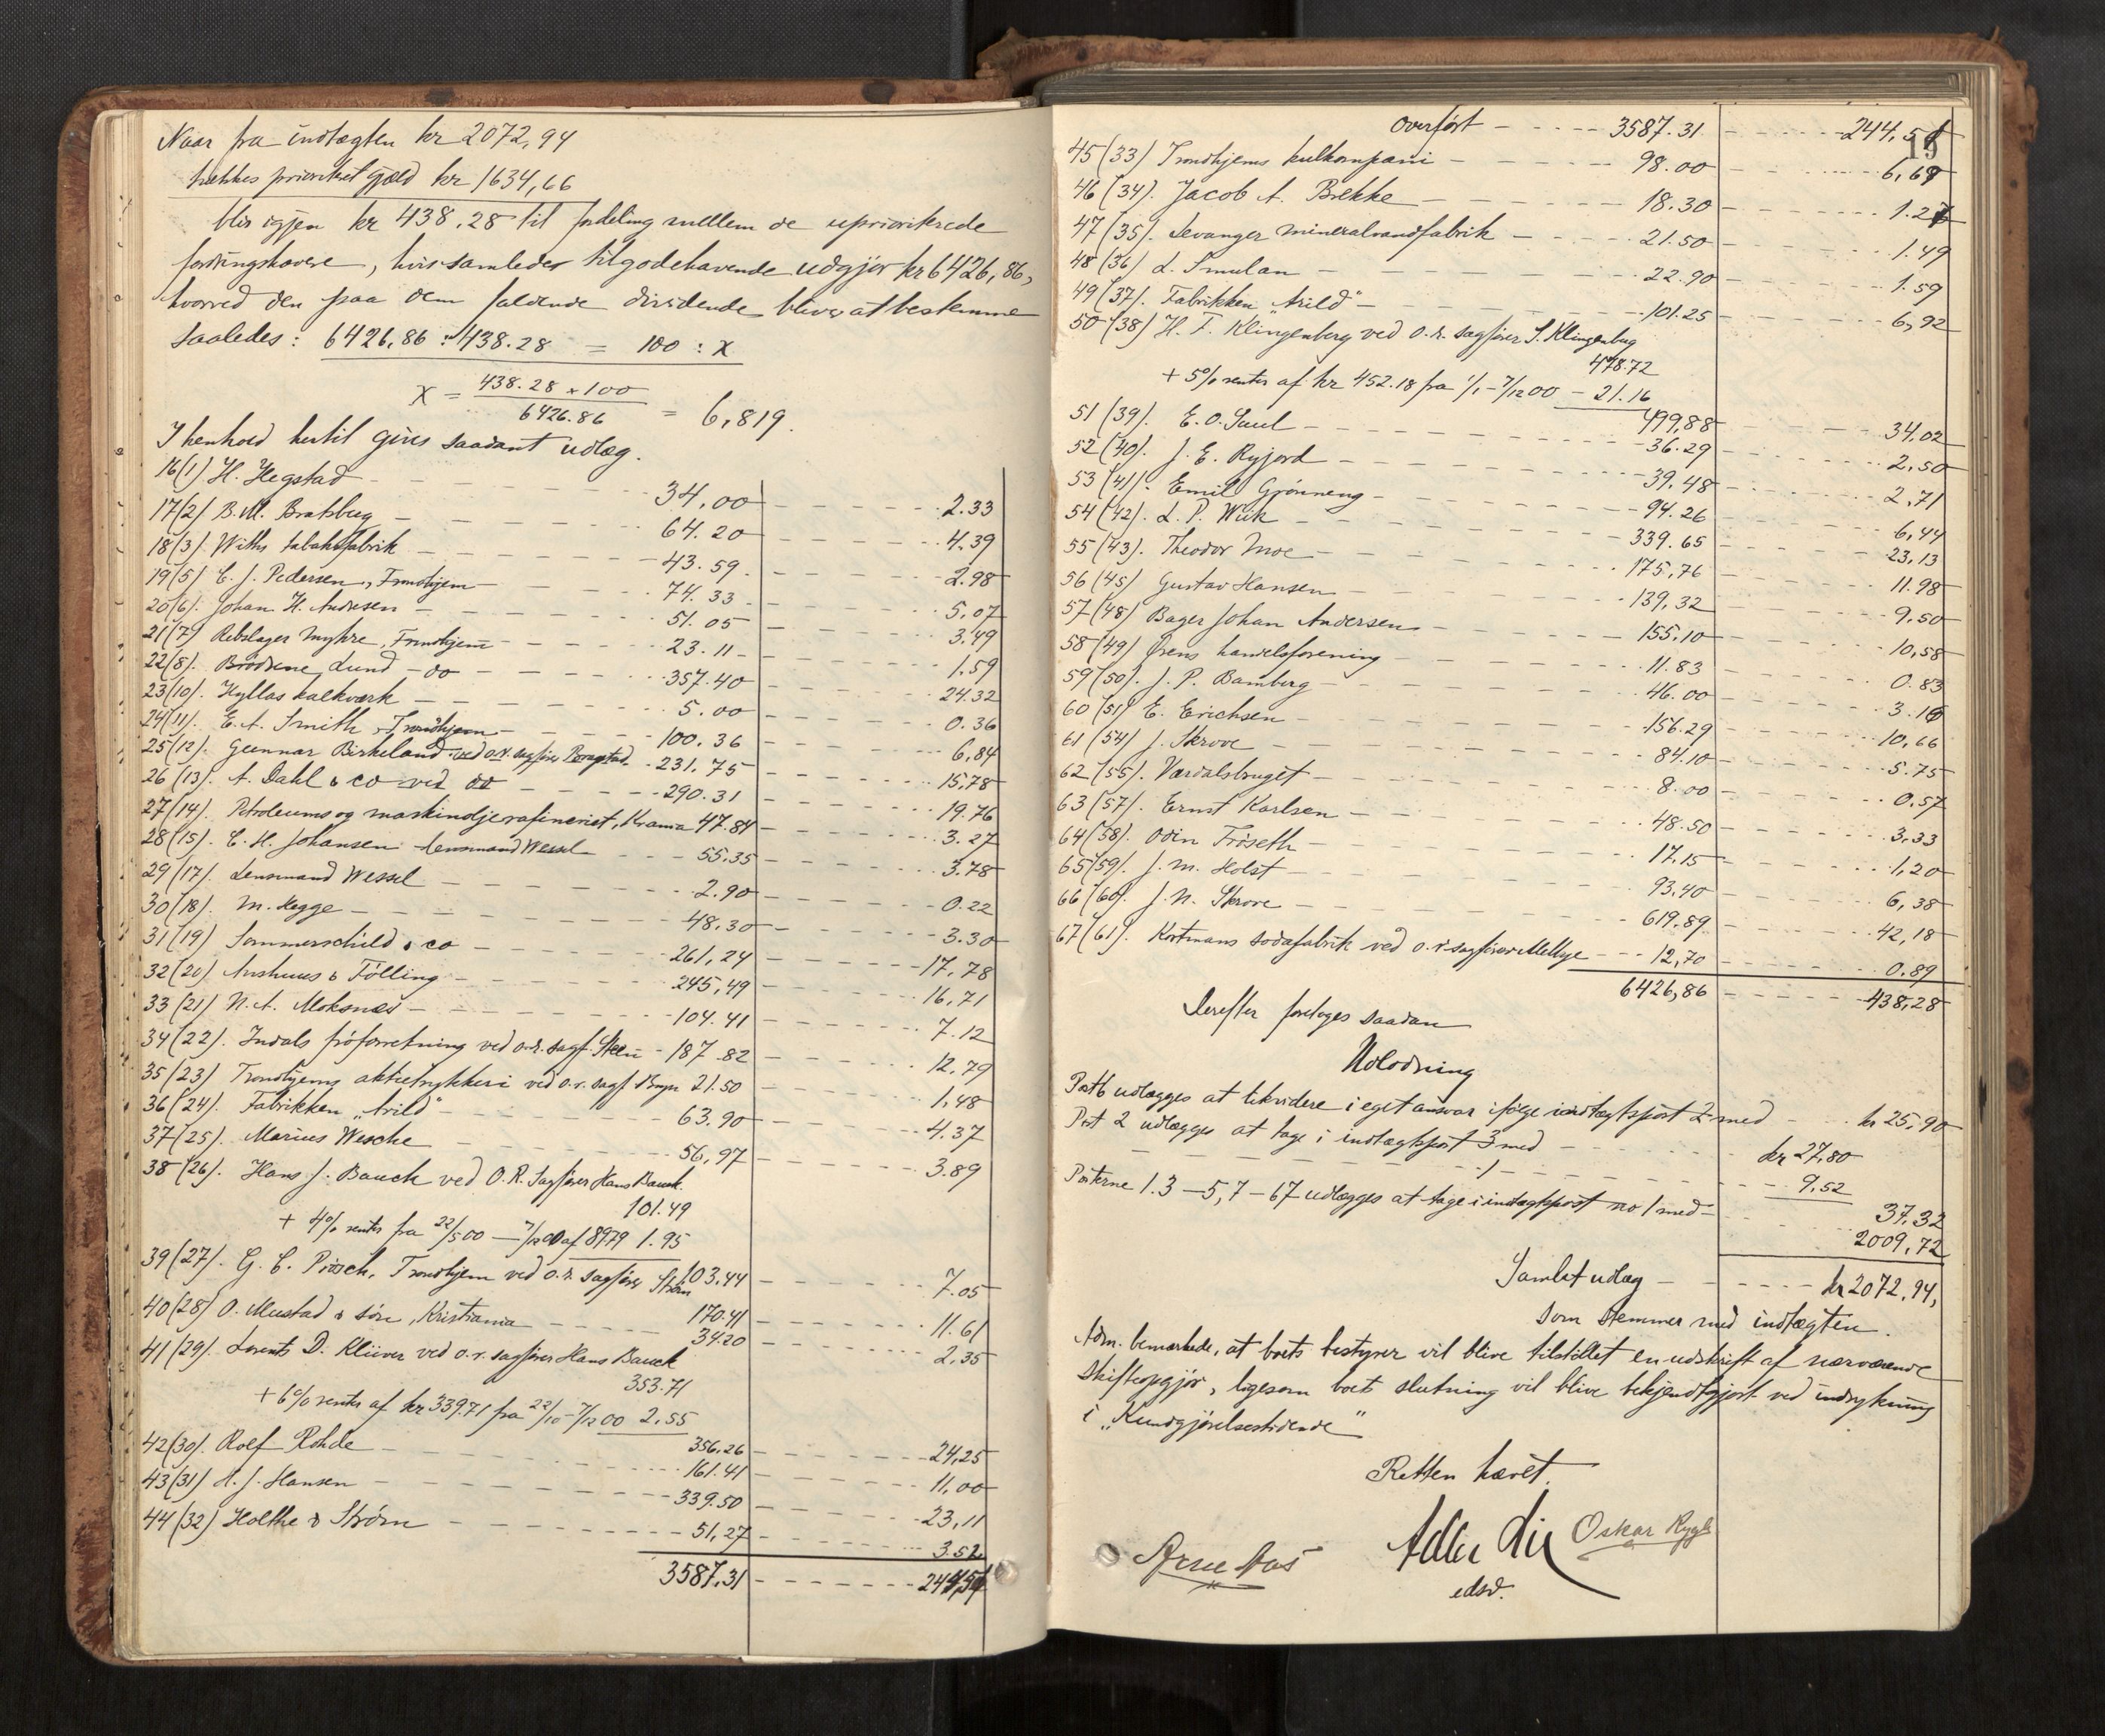 Naar fra indtægten kr 2072,94
trækkes prioritet gjæld kr 1634,66
blir igjen kr 438.28 til fordeling mellem de uprioriterede
fordringshavere, hvis samlede tilgodehavende udgjør kr 6426,86,
hvorved den paa dem faldende dividende bliver at bestemme
saaledes: 6426,86 : 438.28 = 100 : x
x = 438.28 x 100 / 6426.86 = 6,819.
I henhold hertil gives saadant udlæg.
16 (1) H. Hegstad 34,00 2.33
17 (2) B. M. Bratsberg 64.20 4,39
18 (3) Withs tabaksfabrik 43.59 2.98
19 (5) E. J. Pedersen, Trondhjem 74.33 5.07
20 (6). Johan H. Andresen 51.05 3,49
21 (7) Rebslager Myhre, Trondhjem 23.11 1,59
22 (8). Brødrene Lund - do 357.40 24.32
23 (10). Hyllas kalkværk 5.00 0.36
24 (11). E. A. Smith, Trondhjem 100.36 6,84
25 (12). Gunnar Birkeland ved o.r. sagfører 231.75 15,78
26 (13). A. Dahl & co ved do 290.31 19.76
27 (14). Petroleums og maskinoljerafineriet, Krania 47.84 3.27
28 (15). C. H. Johansen lensmand Wessel 55.35 3.78
29 (17). Lensmand Wessel 2.90 0.22
30 (18). M. Hegge 48,30 3.30
31 (19) Sommerschield & co 261,24 17,78
32 (20) Aushuus & Følling 245,49 16,71
33 (21) N. A. Moksnæs 104.41 7.12
34 (22). Indals frøforretning ved o.r. sagf. Steen 187.82 12,79
35 (23) Trondhjems aktietrykkeri ved o.r. sagf. Bryn 21.50 1,48
36 (24). Fabrikken „Arild" 63.90 4.37
37 (25). Marius Wesche 56,97 3.89
38 (26). Hans J. Bauck ved O.R. Sagfører Hans Bauck
101.49
+ 4% renter fra 22/5 00 — 7/12 00 af 89.79 1.95
103.44 7.05
39 (27). G. C. Piøsch, Trondhjem ved o.r. sagfører Strøm
170.41 11.61
40 (28) O. Mustad & søn, Kristiania 34.20 2,35
41 (29). Lorents D. Klüver ved o.r. sagfører Hans Bauck
353.71
+ 6% renter af kr 339.71 fra 22/10 - 7/12 00 2.55
356.26 24,25
42 (30). Rolf Rohde 161.41 11,00
43 (31) H. J. Hansen 339.50 23,11
44 (32) Holthe & Strøm 51,27 3.52
3587,31 244,51
13
Overført 3587.31 244,51
45 (33) Trondhjems kulkompani 98.00 6,69
46 (34). Jacob A. Brekke 18.30 1.27
47 (35). Levanger mineralvandfabrik 21.50 1.49
48 (36) L. Smulan 22.90 1.59
49 (37). Fabrikken „Arild" 101.25 6,92
50 (38) H. F. Klingenberg ved o.r. sagfører S. Klingenberg
478.72
+ 5% renter af kr 452.18 fra 1/1 - 7/12 00 21.16
499,88 34,02
51 (39). E. O. Saul 36.29 2,50
52 (40). J. E. Ryjord 39.48 2,71
53 (41). Emil Grønneng 94.26 6,44
54 (42). L. P. Wiik 339.65 23,13
55 (43). Theodor Moe 175,76 11.98
56 (45) Gustav Hansen 139,32 9,50
57 (48) Bager Johan Andersen 155.10 10,58
58 (49) Ørens handelsforening 11.83 0.83
59 (50). J. P. Bamberg 46.00 3.16
60 (51) E. Erichsen 156.29 10,66
61 (54) J. Skrove 84.10 5.75
62 (55). Værdalsbruget 8.00 0,57
63 (57). Ernst Karlsen 48.50 3,33
64 (58). Odin Frøseth 17.15 1,20
65 (59). J. M. Holst 93.40 6,38
66 (60). J. N. Skrove 619.89 42,18
67 (61). Kortmans sodafabrik ved o.r. sagfører Mellbye 12,70 0.89
6426,86 438,28
Derefter foretoges saadan
Udlodning
Post 6 udlægges at likvidere i eget ansvar ifølge indtægtspost 2 med kr 25,90
Post 2 udlægges at tage i indtægtspost 3 med kr 27,80
- 1 - 9,52
37,32
Posterne 1.3—5, 7—67 udlægges at tage i indtægtspost no 1 med 2009,72
Samlet udlæg kr 2072,94,
som stemmer med indtægten.
Adm. bemærkede, at boets bestyrer vil blive tilstillet en udskrift af nærværende
skifteopgjør, ligesom boets slutning vil blive bekjendtgjort ved indrykning
i „Kundgjørelsestidende"
Retten hævet.
Arne Aas Adler Lie Oskar Rygh
edsv.